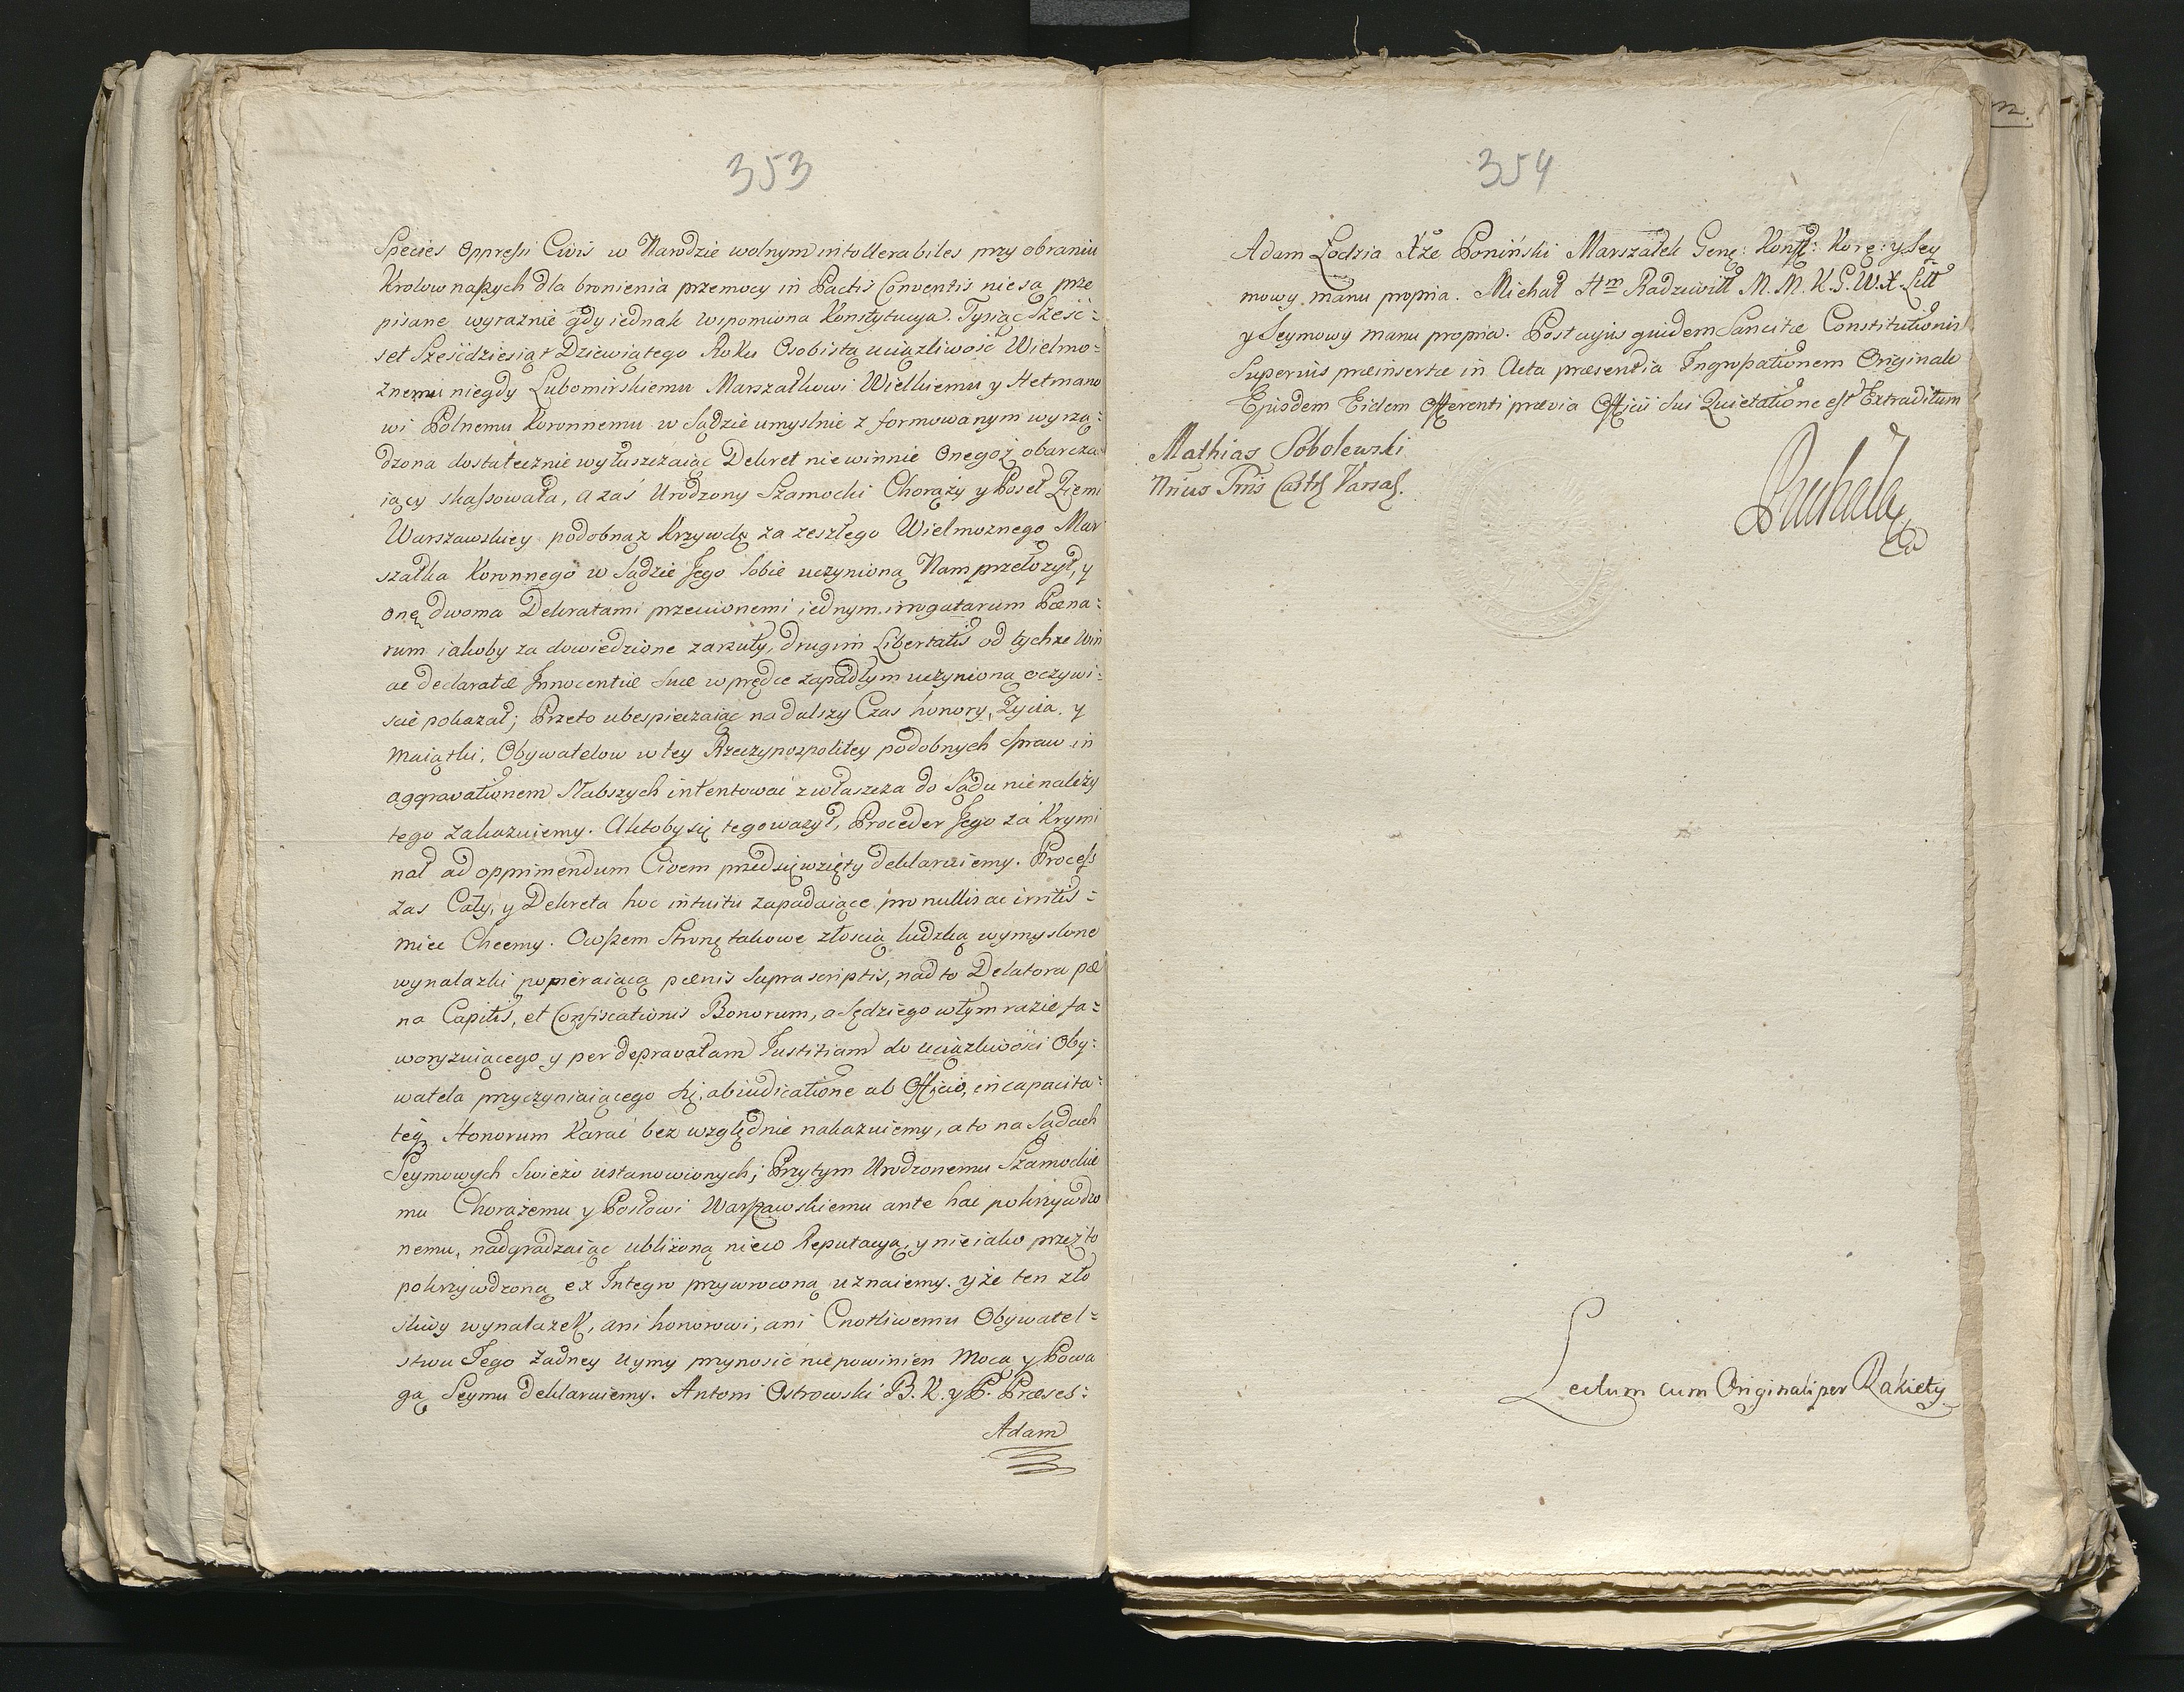 353
Species oppressi Civis w Narodzie wolnym intollerabiles przy obraniu
Krolow naszych dla bronienia przemocy in Pactis Conventis nie są prze
pisane wyraznie gdy iednak wspomniona Konstytucya. Tysiąc Sześć=
set Sześćdziesiąt Dziewiątego Roku Osobistą uciążliwość Wielmo=
żnemu niegdy Lubomirskiemu Marszałkowi Wielkiemu y Hetmano
wi Polnemu Koronnemu w Sądzie umyslnie z formowanym wyrzą=
dzona dostatecznie wyłuszczaiąc Dekret niewinnie Onegoż obarcza
iący skassowała, a zaś Urodzony Szamocki Chorąży y Poseł Ziemi
Warszawskiey podobnąz Krzywdę za zeszłego Wielmoznego Mar
szałka Koronnego w Sądzie Jego Sobie uczynioną Nam przełozył, y
onę dwoma Dekratami przeciwnemi iednym irrogatarum Pœna=
rum iakoby za dowiedzione zarzuty, drugim Libertatis od tychże Win
ac declaratæ Innocentiæ Suæ w prędce zapadłym uczynioną oczywi=
scie pokazał; Przeto ubespieczaiąc na dalszy Czas honory, Zycia, y
Maiątki, Obywatelow w tey Rzeczypospolitey podobnych Spraw in
aggravationem Słabszych intentować zwłaszcza do Sądu nie należy
tego zakazuiemy. A ktoby się tego ważył, Proceder Jego za Krymi
nał ad opprimendum Civem przedsięwzięty deklaruiemy. Process
zas Cały, y Dekreta hoc intuitu zapadaiące pro nullis ac irritis=
mieć Chcemy. Owszem Stronę takowe złoscią ludzką wymyslone
wynalazki popieraiącą pœnis supra scriptis, nadto Delatora pœ
na Capitis, et Confiscationis Bonorum, a Sędziego w tym razie fa=
woryzuiącego y per depravatam Iustitiam do uciązliwości Oby=
watela przyczyniaiącego się, abiudicatione ab Officio, incapacita=
teq Honorum Karać bez względnie nakazuiemy, a to na Sądach
Seymowych Swieżo ustanowionych; Przytym Urodzonemu Szamockie
mu Chorążemu y Posłowi Warszawskiemu ante hac pokrzywdzo
nemu, nadgradzaiąc ubliżoną nieco Reputacyą, y nieiako przez to
pokrzywdzoną ex Integro przywroconą uznaiemy. y że ten zło
sliwy wynalazek, ani honorowi, ani Cnotliwemu Obywatel=
stwu Jego żadney Uymy przynosić nie powinien Mocą y Powa
gą Seymu deklaruiemy. Antoni Ostrowski B. K. y P. Præses=
Adam
354
Adam Łodzia Xże Poniński Marszałek Gene: Konff: Kore: y Sey
mowy manu propria. Michał Hm Radziwiłł M. M. K. G. W. X. Litt
y Seymowy manu propria. Post cujus quidem Sancitæ Constitutionis
Superius præinsertæ in Acta præsentia Ingrossationem Originale
Ejusdem Eidem Offerenti prævia Officii sui Quietatione est Extraditum
Mathias Sobolewski
Castr Varsa.
Lectum cum Originali per Rakiety